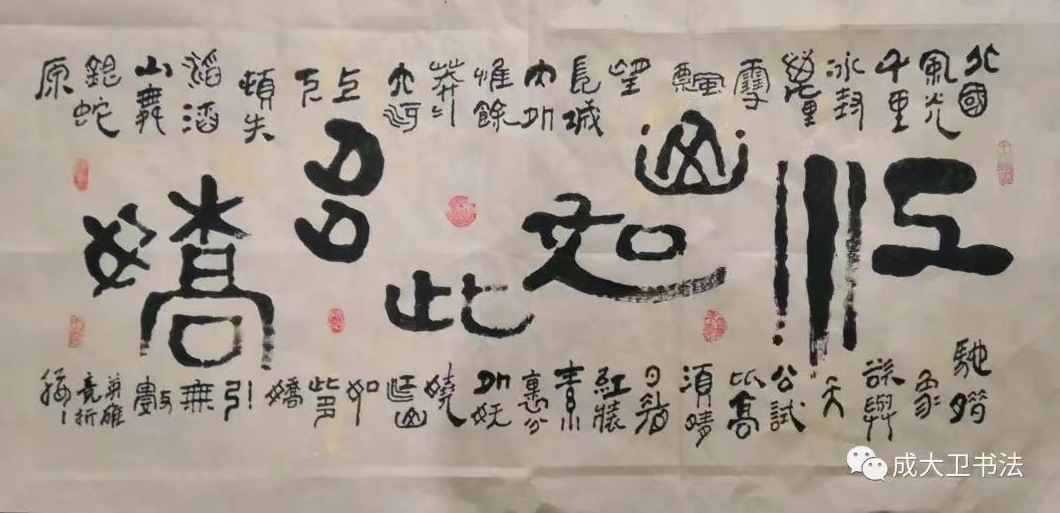 北國
風光
千里
冰封
萬里
雪
飄
望
長城
內外
惟餘
莽莽
大河
上下
頓失
滔滔
山舞
銀蛇
原
江山如此多嬌
馳蠟
象
欲與
天
公試
比高
須晴
日看
紅裝
素
裹分
外妖
嬈
江山
如
此多
嬌
引
無
數
英雄
竞折
腰
成大卫书法